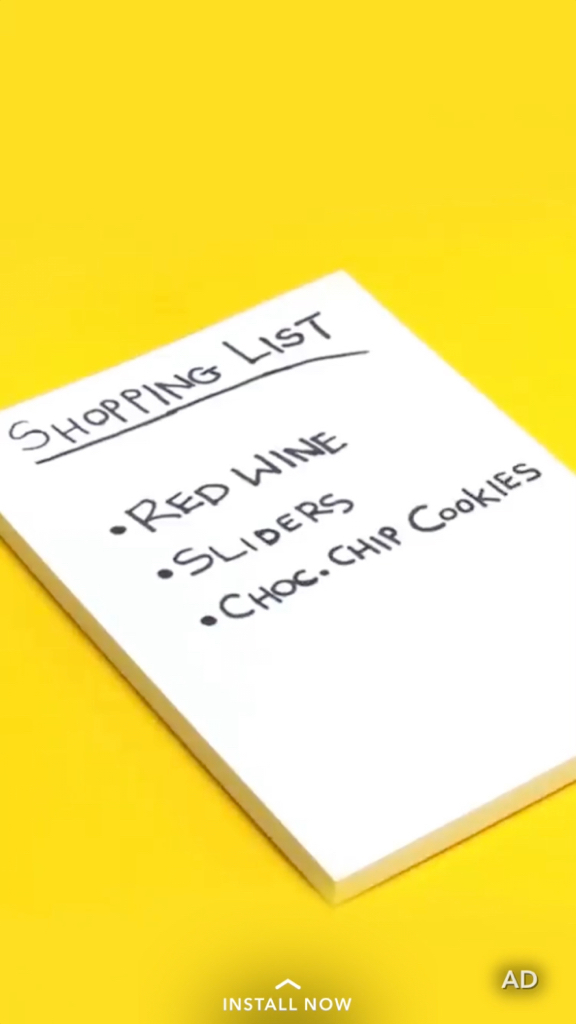 SHOPPING LIST
• RED WINE
• SLIDERS
• CHOC. CHIP COOKIES
AD
INSTALL NOW